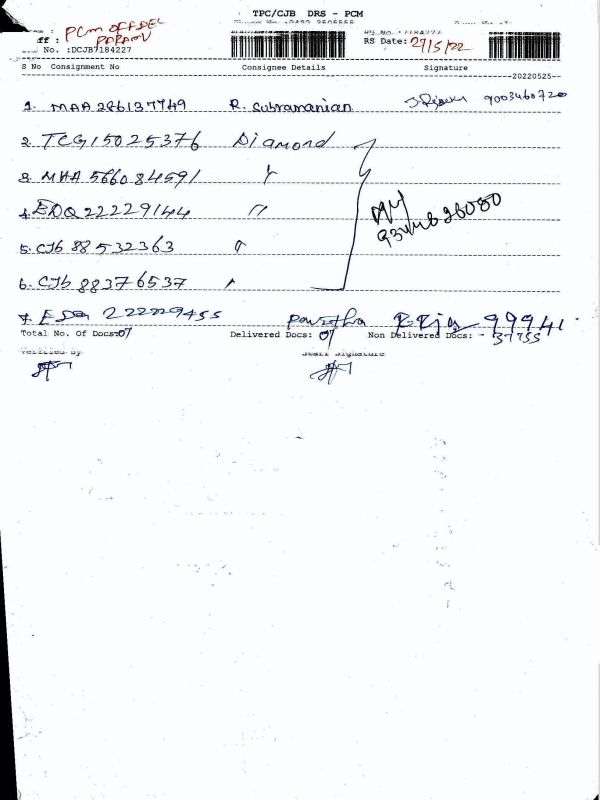 TPC/CJB DRS - PCM
PCM OFF DEL
ff :
No. :DCJB7184227
RS Date: 27/5/22
S No Consignment No Consignee Details Signature
20220525
1. MAA 286137749 R. Subramanian 9003460720
2. TCG15025376 Diamond
3. MAA 566084591 "
4. EDQ 22229144 "
5. CJb 88532363 "
6. CJb 88376537 "
7. EDQ 22229455 Pavithra 99941
Total No. Of Docs:07 Delivered Docs: 07 Non Delivered Docs: - 37755
Verified By Staff Signature